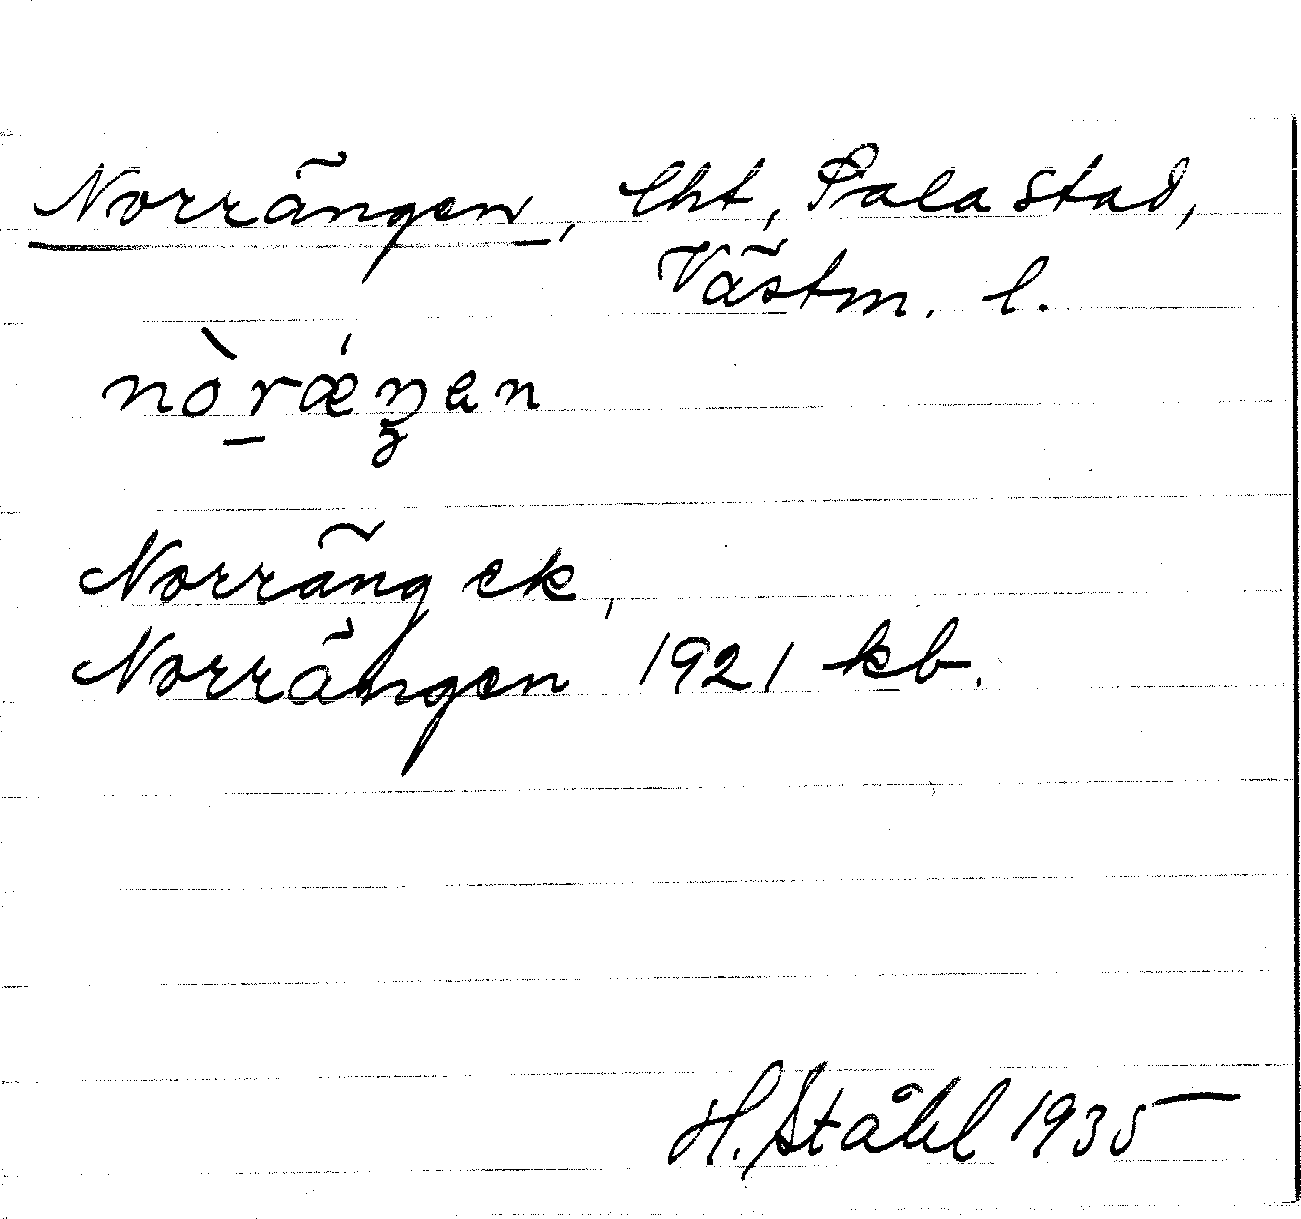 Norrängen, lht, Sala stad,
Västm. l.
nòrǽŋen
Norräng ek,
Norrängen 1921 kb.
H. Ståhl 1935